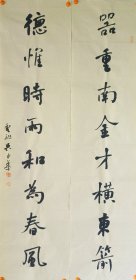 器重南金才橫東箭
德惟時雨和為春風